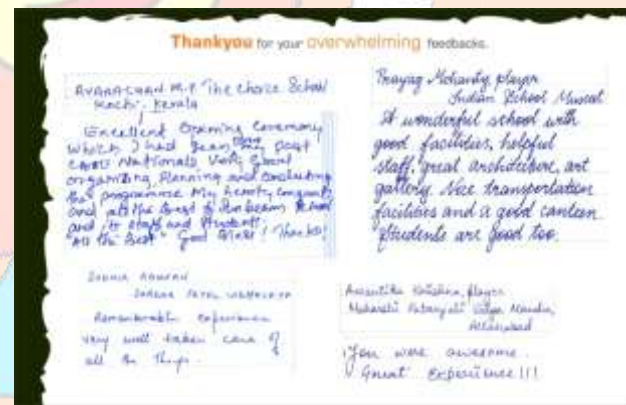 Thankyou for your overwhelming feedbacks.
The Choice School
Kochi, Kerala
Excellent Opening Ceremony
which I had seen my past
CBSE Nationals. Very Good
organizing, Planning and conducting
the programme My hearty congrats
and all the best to Sunbeam School
and its staff and students.
"All the Best" God Bless! Thanks!
Prayag Mohanty, player
Indian School Muscat
A wonderful school with
good facilities, helpful
staff, great architecture, art
gallery. Nice transportation
facilities and a good canteen.
Students are good too.
Sardar Patel Vidyalaya
Remarkable experience
very well taken care of
all the things.
Avantika Krishna, player
Maharishi Patanjali Vidya Mandir,
Allahabad
You were awesome.
Great Experience!!!